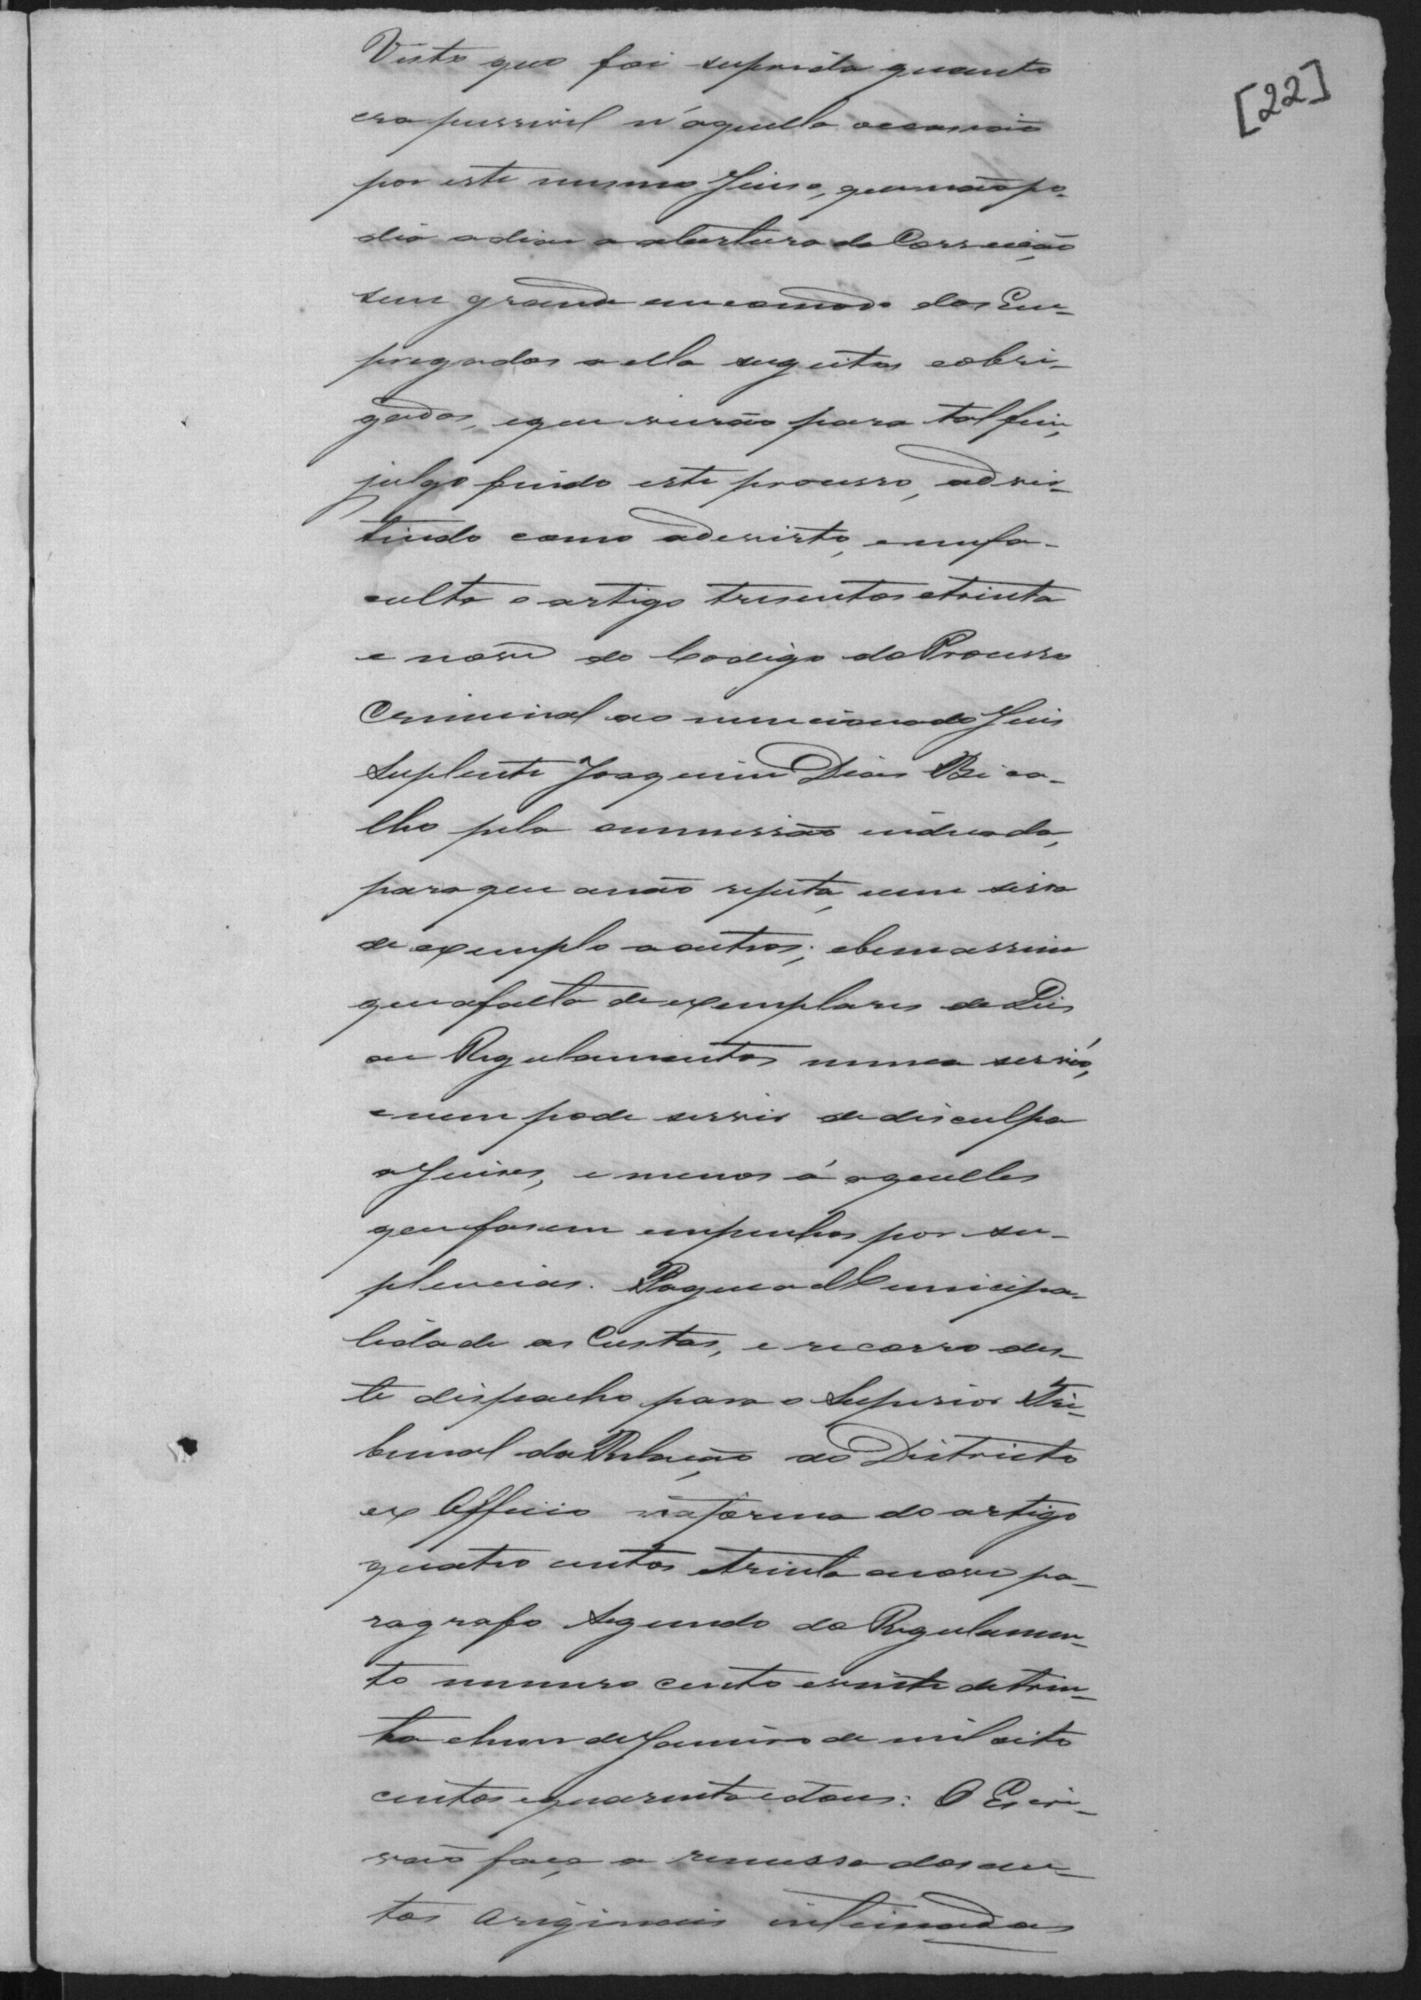 [22]
Visto que foi suprida quanto
era pussivel n'aquella occasião
por este mesmo Juiso, que não po-
dia adiar a abertura da Correição
sem grande encomodo dos Em-
pregados a ella sugeitos e obri-
gados, e que virão para tal fim,
julgo findo este processo, adver-
tindo como advirto, e me fa-
culta o artigo tresentos e trinta
e nove do Codigo do Processo
Criminal ao mencionado Juis
Suplente Joaquim Dias Bica-
lho pela ommissão indicada,
para que a não repita, nem sirva
de exemplo a outros; e bem assim
que a falta de exemplares de Leis
ou Regulamentos nunca servio,
e nem pode servir de disculpa
a Juises, e menos á aquelles
que fasem empenhos por su-
plencias. Pague a Municipa-
lidade as Custas, e recorro des-
te dispacho para o Superior Tri-
bunal da Relação do Districto
ex Officio na forma do artigo
quatro centos e trinta e nove pa-
ragrafo Segundo do Regulamen-
to numero cento e vinte de trin-
ta e hum de Janeiro de mil oito
centos e quarenta e dous: O Escri-
vão faça a remessa dos au-
tos originais intimadas